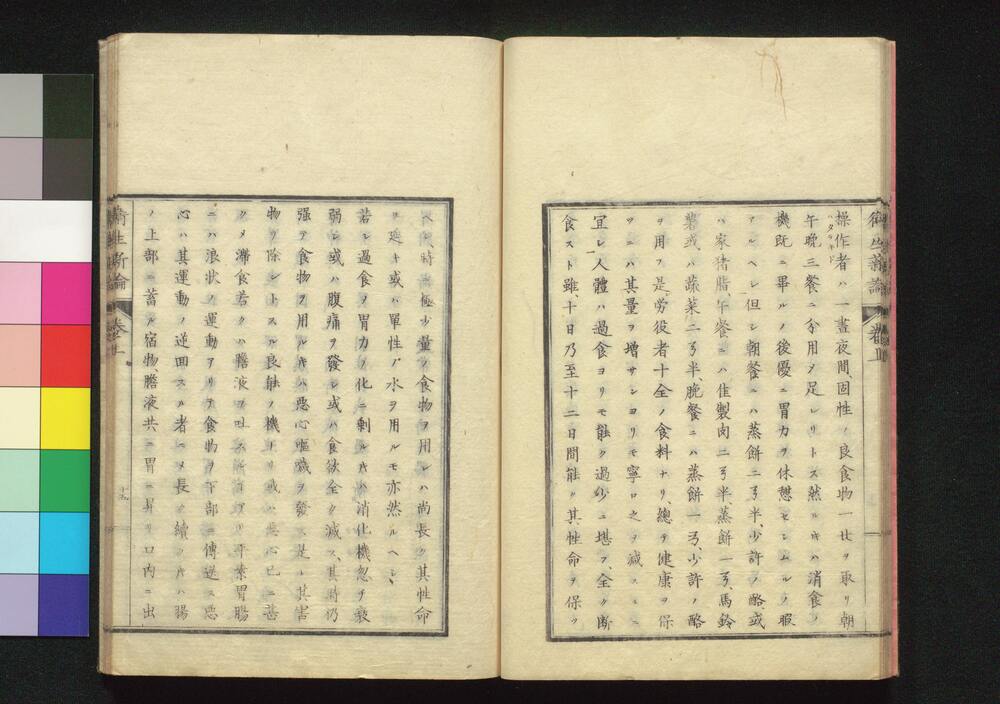 衛生新論
操作者ハ一晝夜間、固性ノ良食物一廿ヲ取リ朝
ハタラキド
午晩三餐ニ分用ヲ足レリトス然ルキハ消食ノ
機既ニ畢ルノ後優ニ胃力ヲ休憩セシムルノ暇
アルヘシ但シ朝餐ニハ蒸餅二弓半、少許ノ酪或
ハ家猪腊、午餐ニハ佳製肉二弓半、蒸餅一弓、馬鈴
薯或ハ蔬菜二弓半、晩餐ニハ蒸餅一弓、少許ノ酪
ヲ用フ是労役者十全ノ食料ナリ、總テ健康ヲ保
ツニハ其量ヲ増サンヨリモ寧ロ之ヲ減スニ
宜シ人體ハ過食ヨリモ能ク過少ニ堪フ、全ク断
食スト雖、十日乃至十二日間能ク其性命ヲ保ツ
ヘシ、時極少量ノ食物ヲ用レハ尚長ク其性命
ヲ延キ或ハ單性ノ水ヲ用ルモ亦然ルヘシ、
若シ過食ノ胃力ノ化ニ剰ルキハ消化機忽チ衰
弱シ或ハ腹痛ヲ發シ或ハ食欲全ク減ス、其時仍
強テ食物ヲ用ルキハ惡心嘔噦ヲ發ス是レ其害
物ヲ除シトスル良能ノ機ナリ或ハ惡心已ニ甚
クメ滞食若クハ膽液ヲ吐スル平素胃腸
ニハ浪状ノ運動アリテ食物ヲ下部ニ傳送ス惡
心ハ其運動ノ逆回スル者ニメ長ク續クキハ腸
ノ上部ニ蓄ル宿物、膽液共ニ胃ニ昇リ口内ニ出
衛生新論
十五